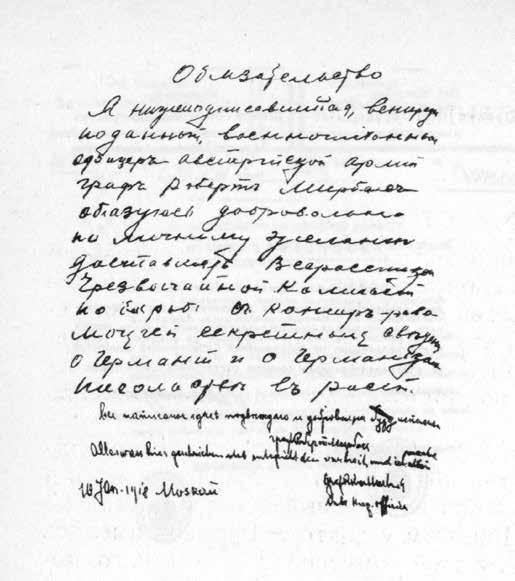 Обязательство
Я нижеподписавшийся, венгерск
поданный, военнопленный
офицеръ австрійской арміи
графъ Робертъ Мирбахъ
обязуюсь добровольно
по личному желанию
доставлять Всероссийской
Чрезвычайной Комиссіи
по борьбе съ контръ рево
люціей секретныя сведен
о Германіи и о Германском
посольстве въ
Все написанное здесь подтверждаю и добровольно буду исполнять
граф Роберт Мирбах
Alles was hier geschrieben ist entspricht der Wahrheit und
Graf Robert Mirbach
10 Jän. 1918 Moskau